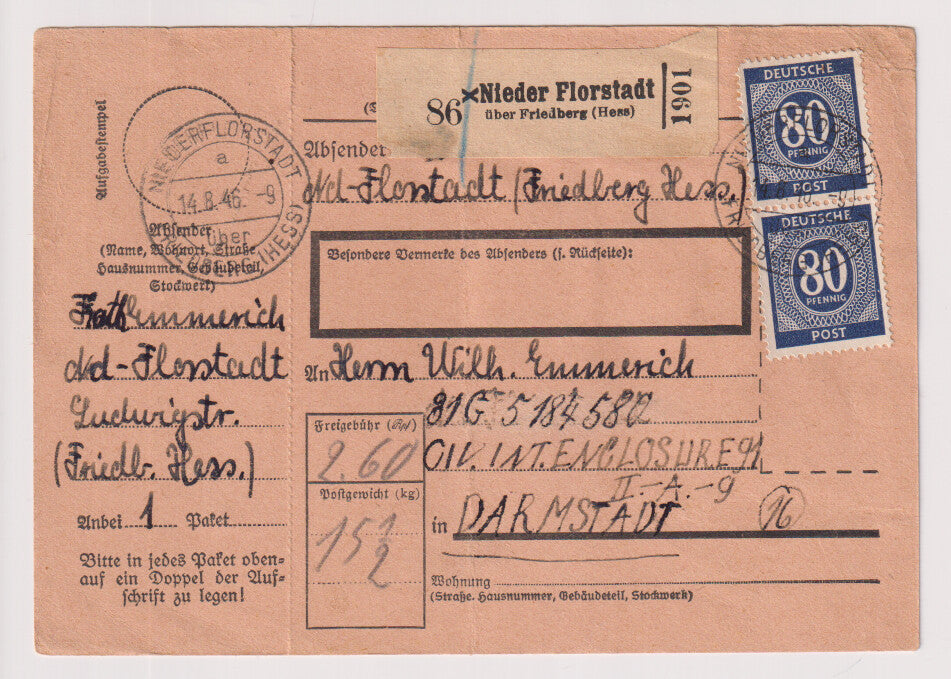 Aufgabestempel
NIEDERFLORSTADT
a
14.8.46.-9
über
(HESS)
86 Nieder Florstadt
über Friedberg (Hess)
1901
DEUTSCHE
80
PFENNIG
POST
DEUTSCHE
80
PFENNIG
POST
Absender
Nd-Florstadt (Friedberg Hess.)
Absender
(Name, Wohnort, Straße
Hausnummer, Gebäudeteil,
Stockwerk)
Besondere Vermerke des Absenders (s. Rückseite):
Kath. Emmerich
Nd-Florstadt
Ludwigstr.
(Friedb. Hess.)
An Herrn Wilh. Emmerich
31G 5 184 580
CIV. INT. ENCLOSURE 91
II.-A.-9
in DARMSTADT
16
Freigebühr (RM)
2.60
Postgewicht (kg)
15 1/2
Anbei 1 Paket
Bitte in jedes Paket oben-
auf ein Doppel der Auf-
schrift zu legen!
Wohnung
(Straße, Hausnummer, Gebäudeteil, Stockwerk)